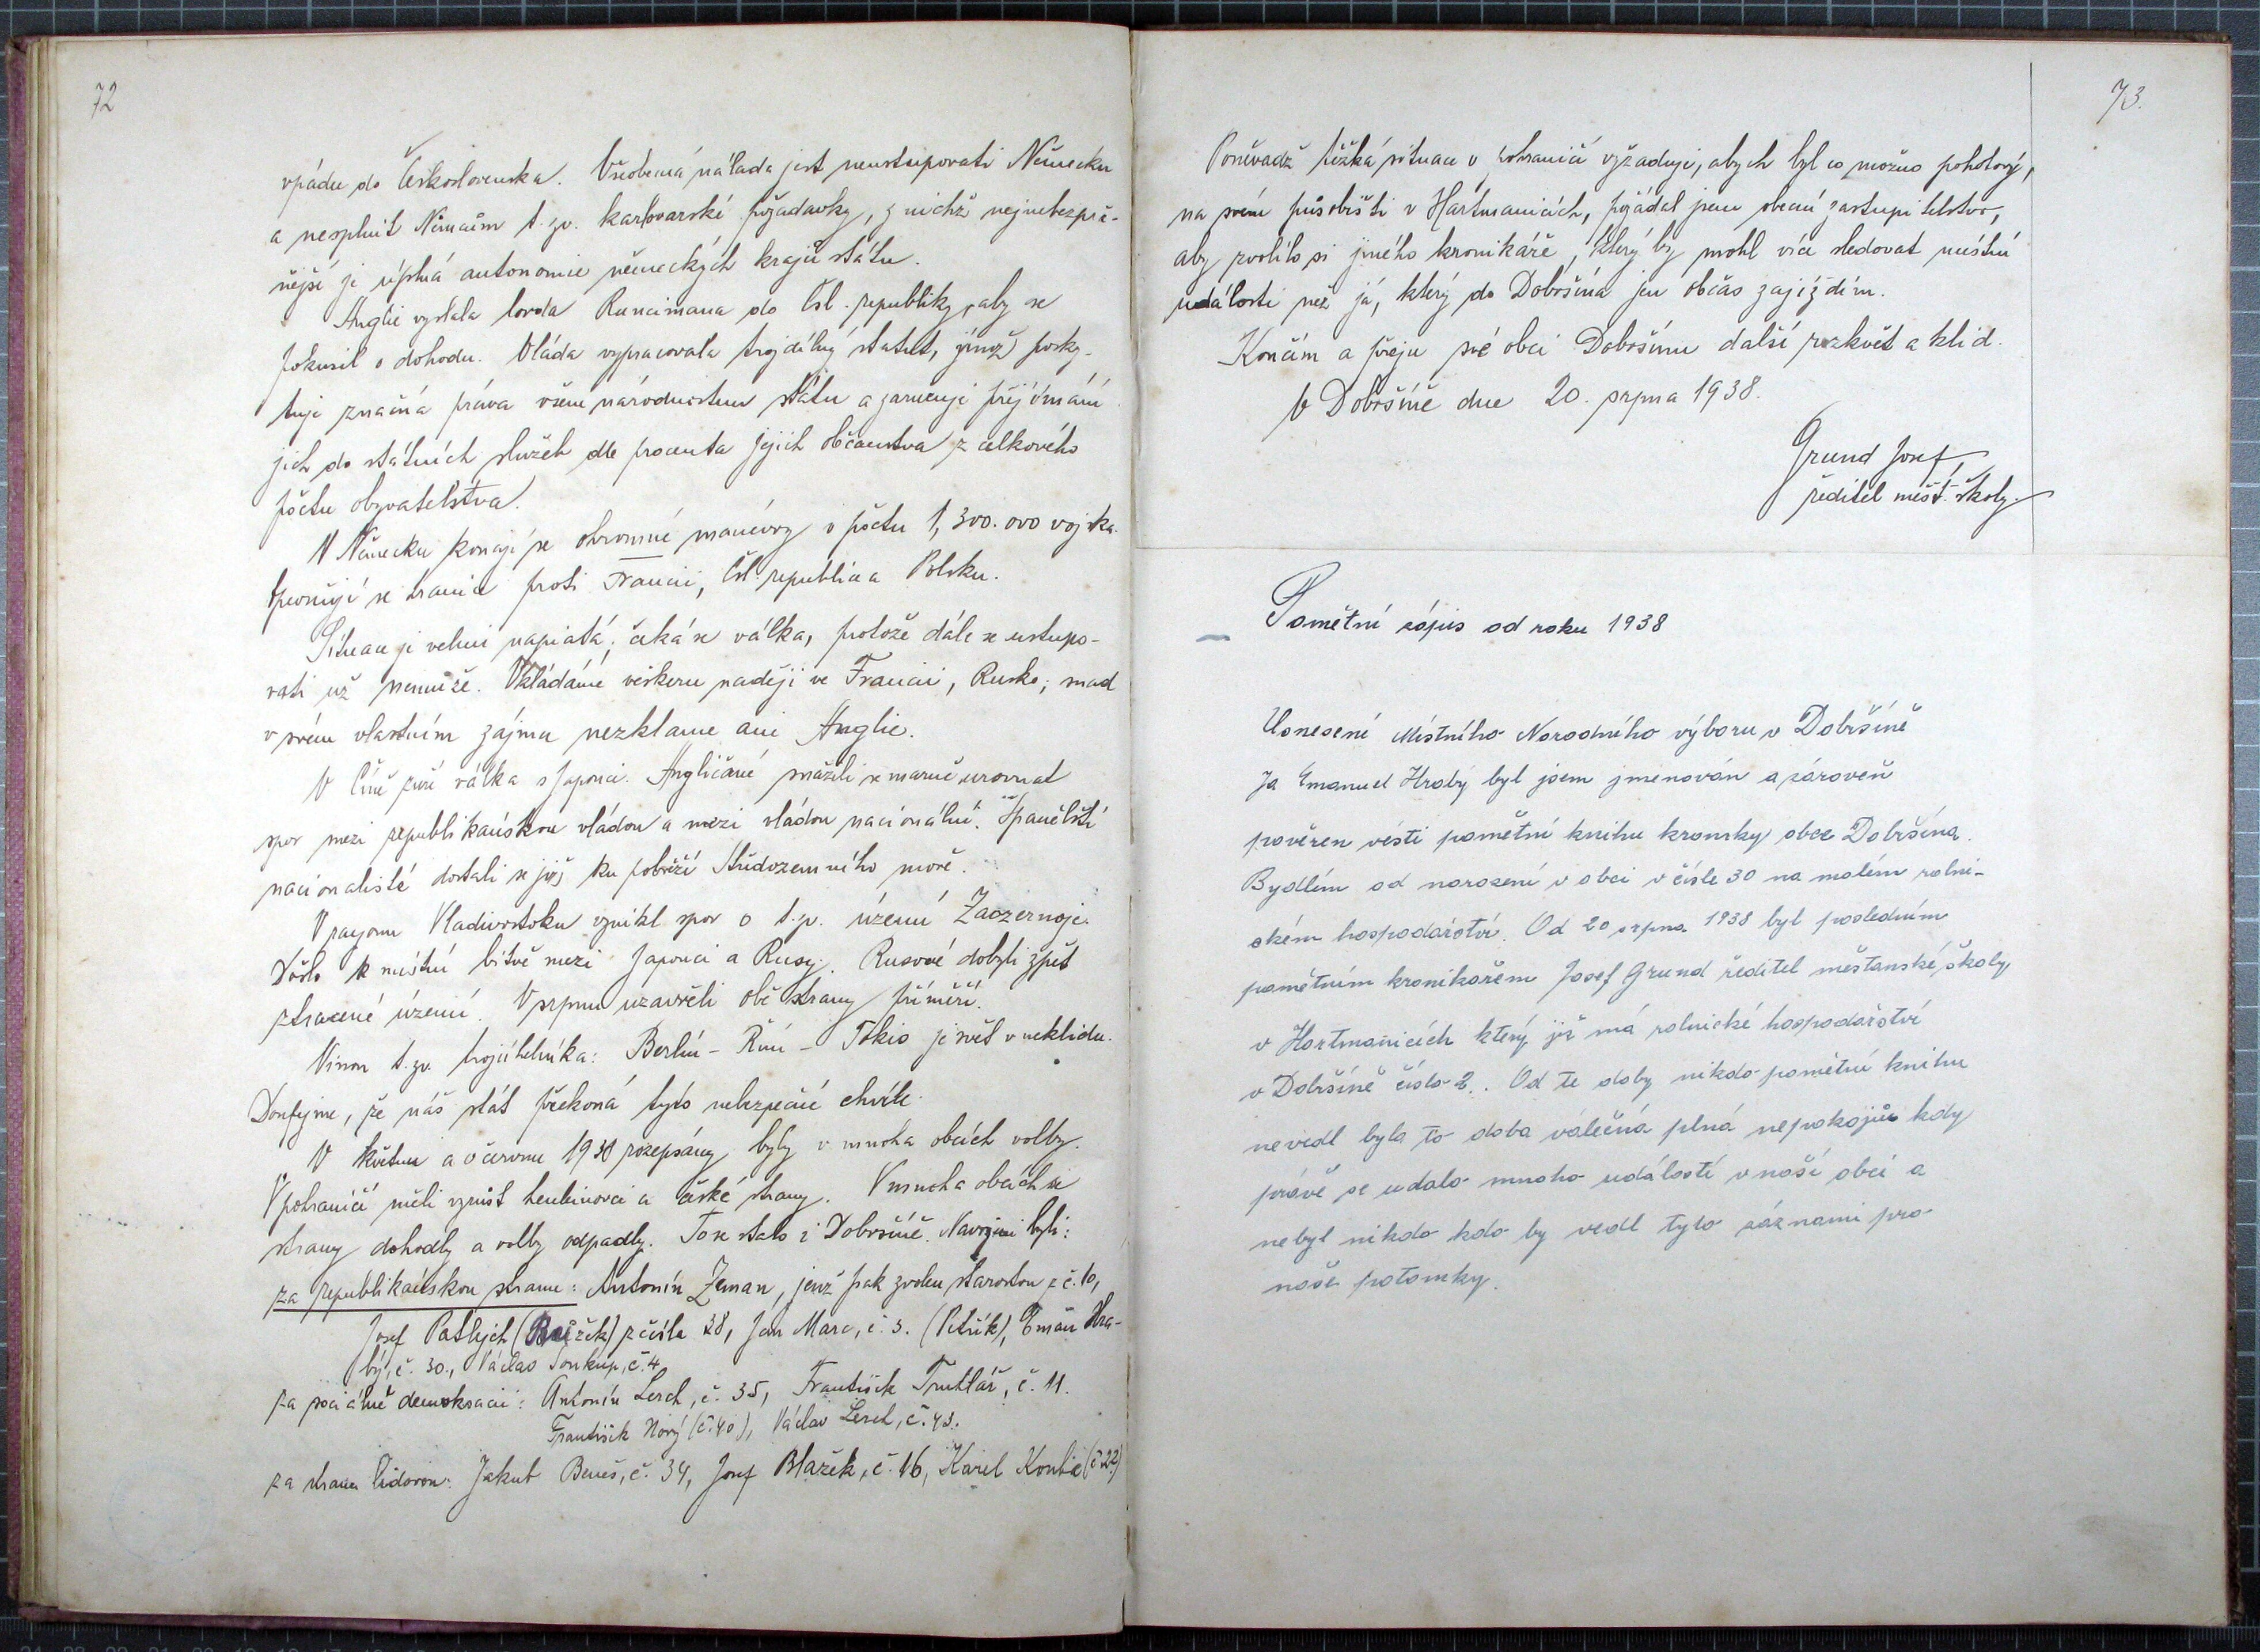 72
vpádu do Československa. Všeobecná nálada jest neustupovati Německu
a nesplnit Němcům t. zv. karlovarské požadavky, z nichž nejnebezpeč-
nější je úplná autonomie německých krajů státu.
Anglie vyslala lorda Runcimana do Čsl. republiky, aby se
pokusil o dohodu. Vláda vypracovala trojdílný statut, jímž posky-
tuje značná práva všem národnostem státu a zaručuje přijímání
jich do státních služeb dle procenta jejich občanstva z celkového
počtu obyvatelstva.
V Německu konají se ohromné manévry v počtu 1,300.000 vojska.
Opevňují se hranice proti Francii, Čsl. republice a Polsku.
Situace je velmi napiatá, čeká se válka, protože dále se ustupo-
vati už nemůže. Vkládáme veškeru naději ve Francii, Rusko; snad
v svém vlastním zájmu nezklame ani Anglie.
V Číně zuří válka s Japonci. Angličané snažili se marně urovnat
spor mezi republikánskou vládou a mezi vládou nacionální. Španělští
nacionalisté dostali se již ku pobřeží Středozemního moře.
V rayonu Vladivostoku vznikl spor o t. zv. území Zaozernoje.
Došlo k místní bitvě mezi Japonci a Rusy. Rusové dobyli zpět
ztracené území. V srpnu uzavřeli obě strany příměří.
Vinou t. zv. trojúhelníka: Berlín - Řím - Tokio je svět v neklidu.
Doufejme, že náš stát překoná tyto nebezpečné chvíle.
V květnu a v červnu 1938 rozepsány byly v mnoha obcích volby.
V pohraničí měli vzrůst henleinovci a české strany. V mnoha obcích se
strany dohodly a volby odpadly. To se stalo i v Dobršíně. Navrženi byli:
za republikánskou stranu: Antonín Zeman, jenž pak zvolen starostou z č. 10,
Josef Patlejch (Růžek) z čísla 38, Jan Marc, č. 3. (Petřík), Eman Hra-
bý, č. 30., Václav Soukup, č. 4.
za sociálně demokracii: Antonín Lerch, č. 35, František Trutlář, č. 11.
František Nový (č. 40), Václav Lerch, č. 43.
za stranu lidovou: Jakub Beneš, č. 34, Josef Blažek, č. 16, Karel Kontic (č. 22)
73.
Poněvadž těžká situace v pohraničí vyžaduje, abych byl co možno pohotový,
na svém působišti v Hartmanicích, požádal jsem obecní zastupitelstvo,
aby zvolilo si jiného kronikáře, který by mohl více sledovat místní
události než já, který do Dobršína jen občas zajíždím.
Končím a přeju své obci Dobršínu další rozkvět a klid.
V Dobršíně dne 20. srpna 1938.
Grund Josef,
ředitel měšť. školy.
Pamětní zápis od roku 1938
Usnesení Místního Narodního výboru v Dobršíně
Ja Emanuel Hrabý byl jsem jmenován a zároveň
pověřen vésti pamětní knihu kroniky obce Dobršína.
Bydlím od narození v obci v čísle 30 na malém rolni-
ckém hospodářství. Od 20 srpna 1938 byl posledním
pamětním kronikářem Josef Grund ředitel měšťanské školy
v Hartmanicích který již má rolnické hospodářství
v Dobršíně číslo 2.. Od te doby nikdo pamětní knihu
nevedl byla to doba válečná plná nepokojů kdy
právě se udalo mnoho událostí v naší obci a
nebyl nikdo kdo by vedl tyto záznami pro
naše potomky.